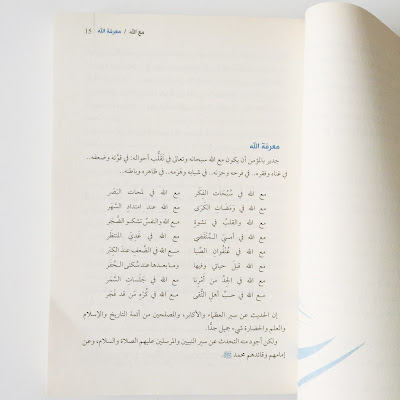 مع الله / معرفة الله 15
معرفة الله
جدير بالمؤمن أن يكون مع الله سبحانه وتعالى في تقلُّب أحواله: في قوّته وضعفه..
في غناه وفقره.. في فرحه وحزنه.. في شبابه وهرمه.. في ظاهره وباطنه..
مع الله في سُبُحَات الفِكَر مع الله في لمحات البَصَر
مع الله في وَمَضات الكَرَى مع الله عند امتداد السَّهَر
مع الله والقلبُ في نشوةٍ مع الله والنفسُ تشكو الضَّجَر
مع الله في أمسيَ المُنقَضي مع الله في غَدِيَ المنتظَر
مع الله في عُنفُوان الصِّبا مع الله في الضَّعف عندَ الكِبَر
مع الله قبلَ حياتي وفيها وما بعدها عند سُكنى الحُفَر
مع الله في الجِدِّ من أمرِنا مع الله في جَلَسات السَّمَر
مع الله في حبِّ أهلِ التُّقَى مع الله في كُرْه مَن قد فَجَر
إن الحديث عن سير العظماء والأكابر، والمصلحين من أئمة التاريخ والإسلام
والعلم والحضارة شيء جميل جدًّا.
ولكن أجود منه التحدث عن سير النبيين والمرسلين عليهم الصلاة والسلام، وعن
إمامهم وقائدهم محمد ﷺ.